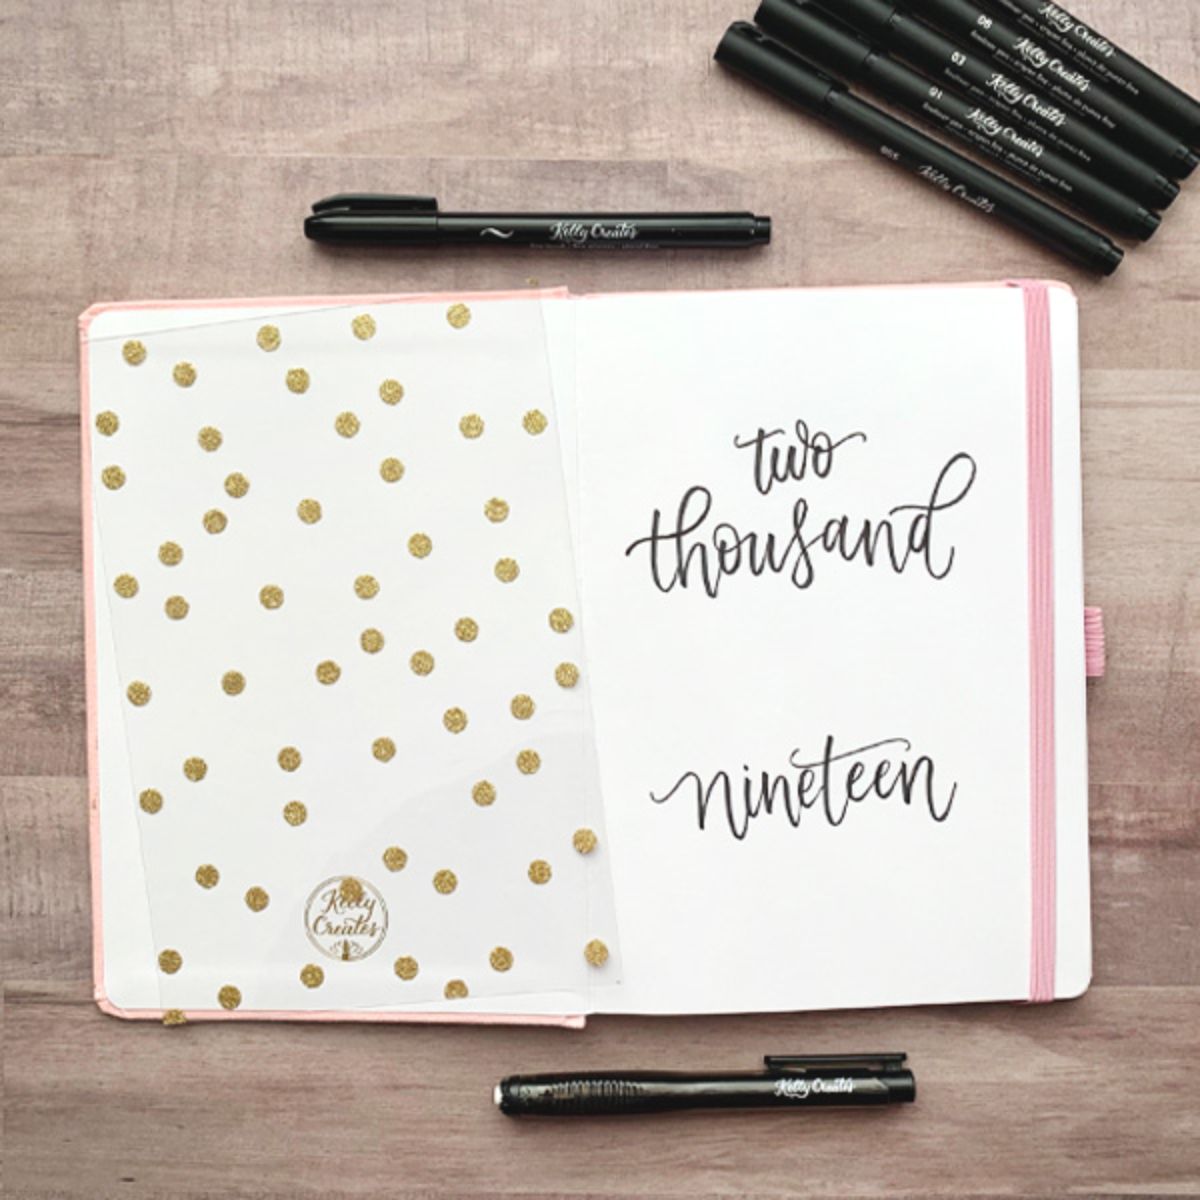 Kelly Creates
08
Kelly Creates
03
Kelly Creates
01
Kelly Creates
005 Kelly Creates
Kelly Creates
two
thousand
nineteen
Kelly
Creates
Kelly Creates